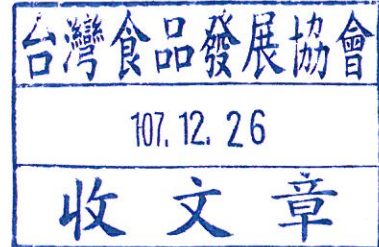 台灣食品發展協會
107. 12. 26
收文章